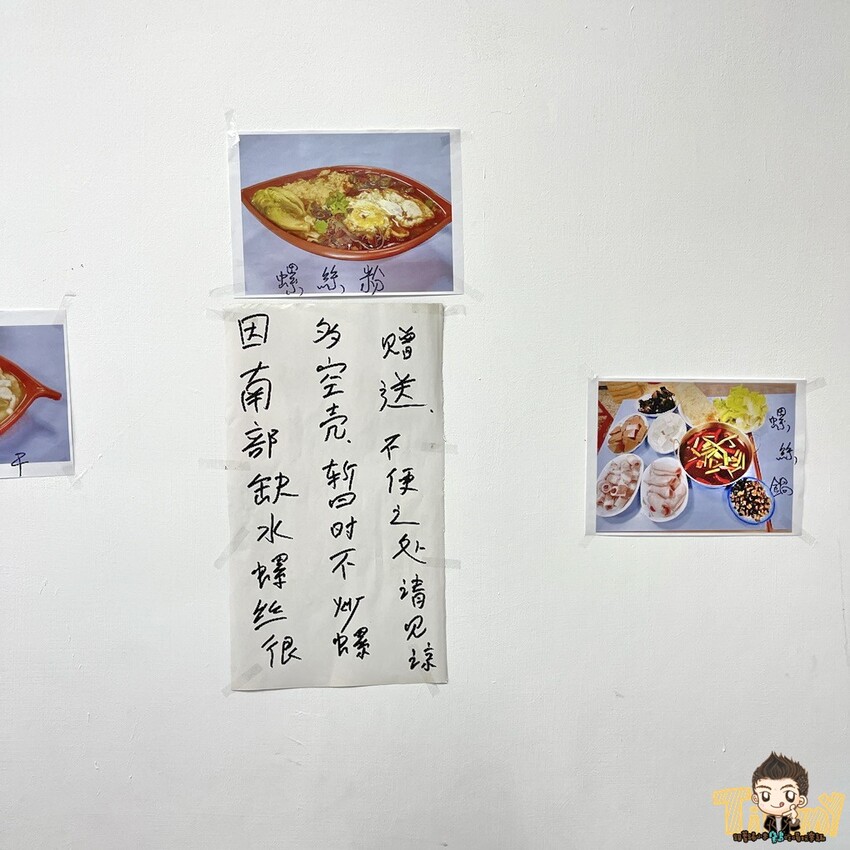 螺絲粉
因南部缺水螺丝很
多空壳、暂时不炒螺
赠送、不便之处请见谅
螺絲鍋
干